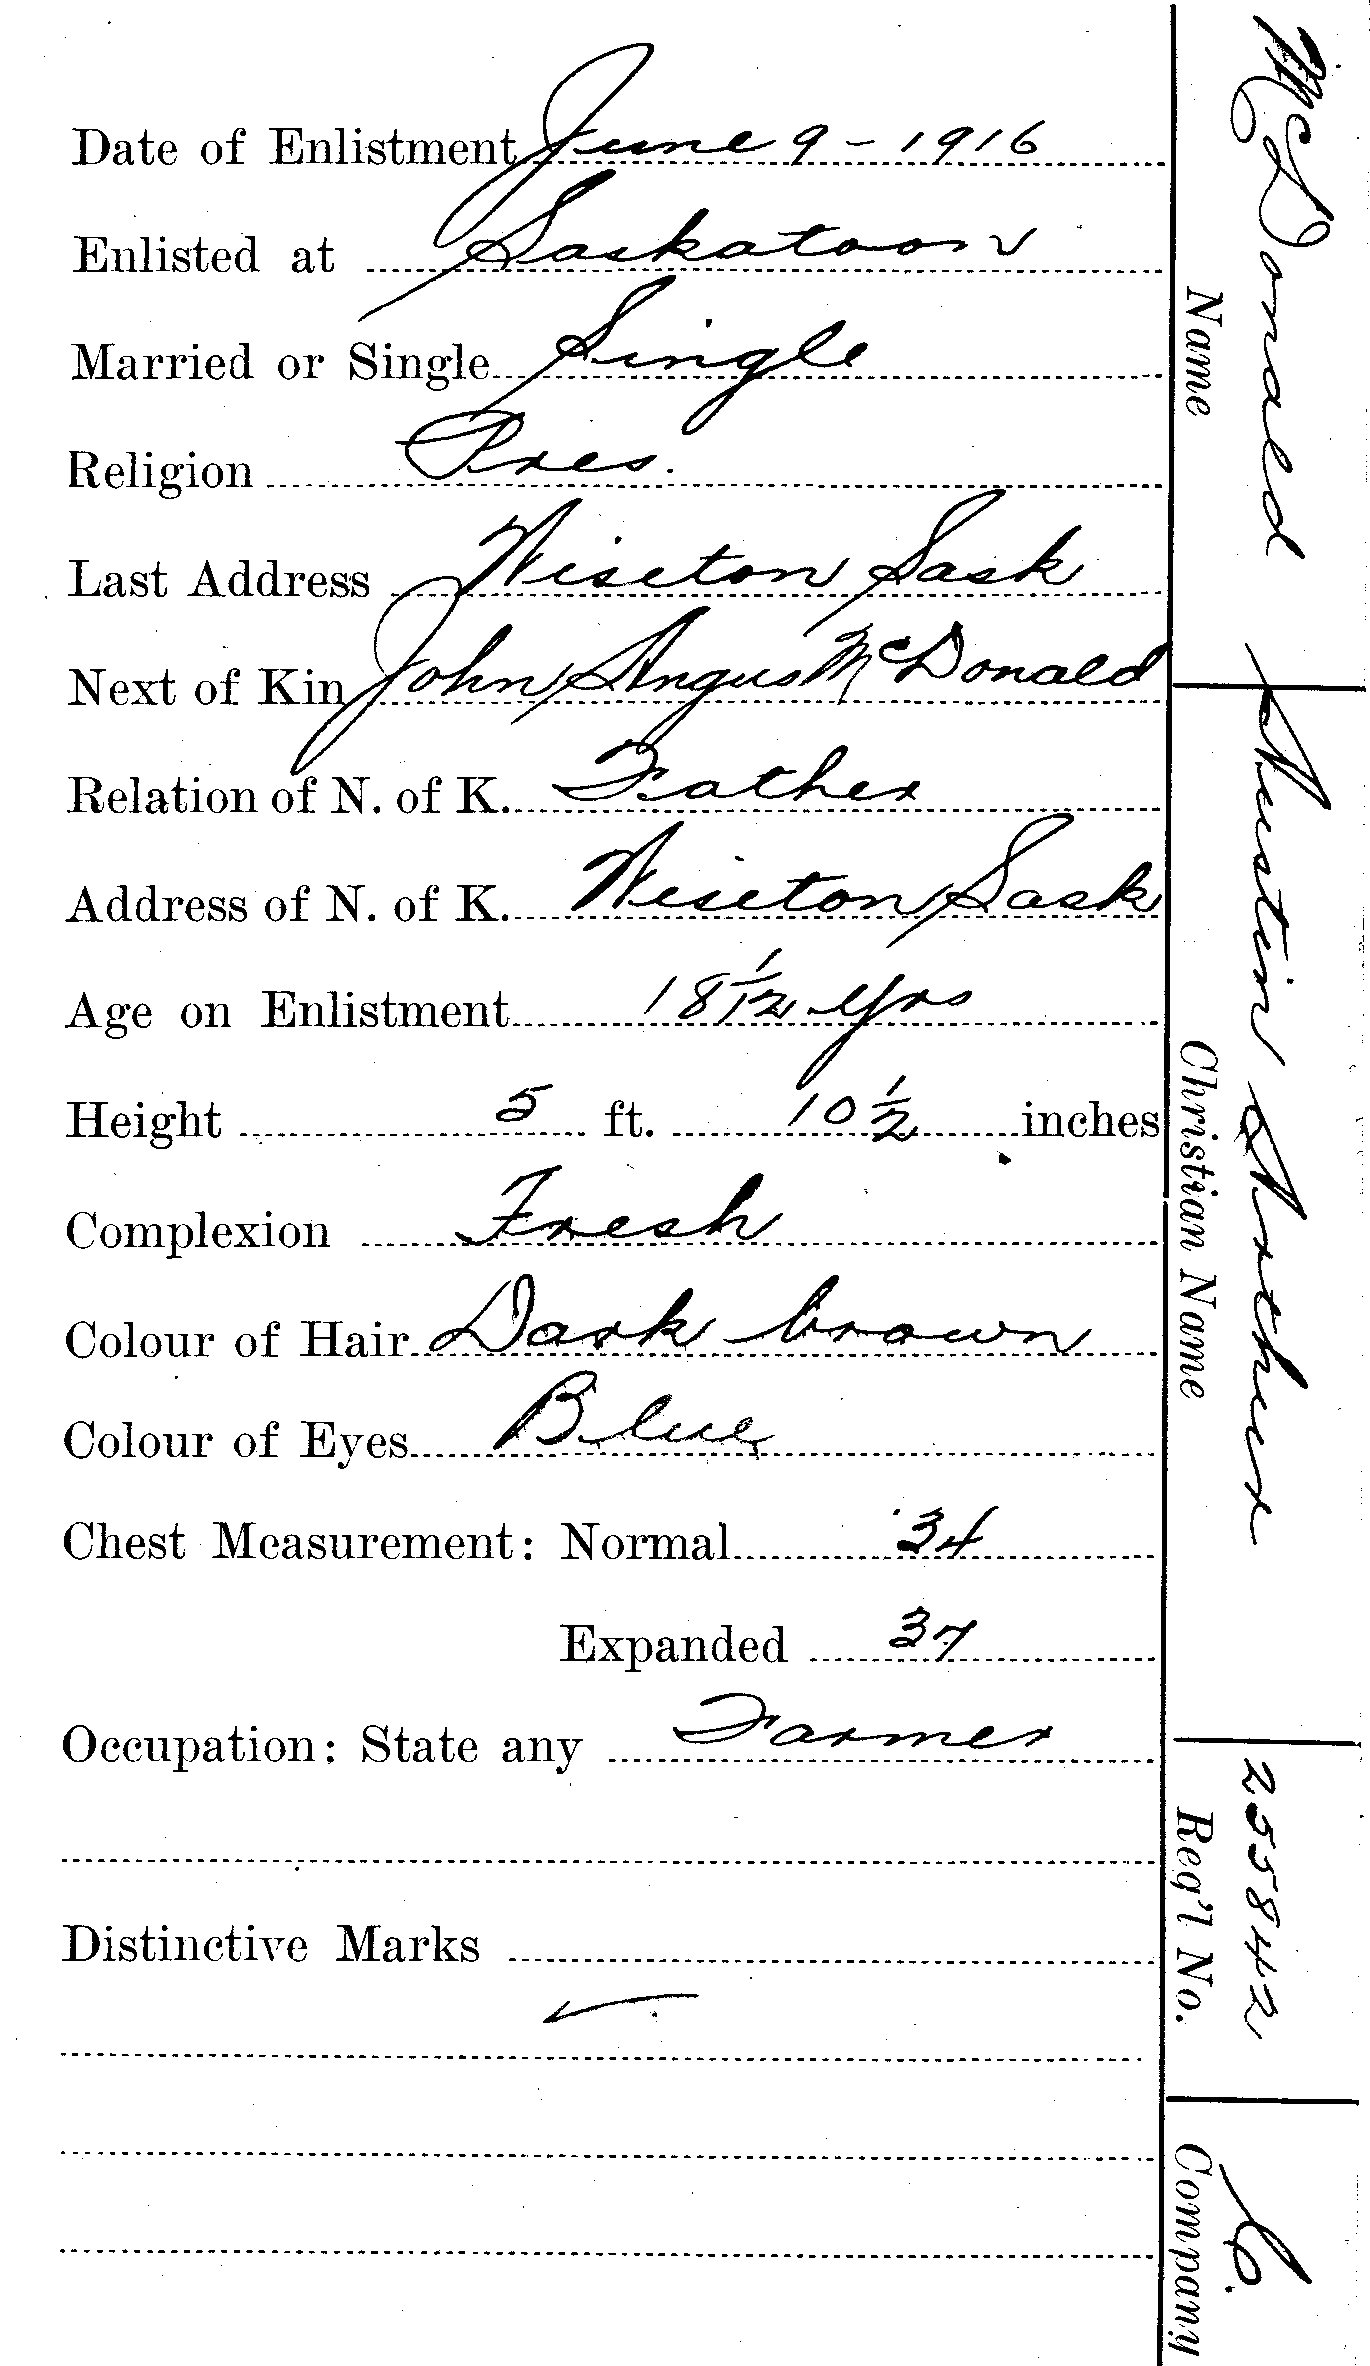 Date of Enlistment June 9 - 1916
Enlisted at Saskatoon
Married or Single Single
Religion Pres.
Last Address Wiseton Sask
Next of Kin John Angus McDonald
Relation of N. of K. Father
Address of N. of K. Wiseton Sask
Age on Enlistment 18 1/12 yrs
Height 5 ft. 10 1/2 inches
Complexion Fresh
Colour of Hair Dark brown
Colour of Eyes Blue
Chest Measurement: Normal 34
Expanded 37
Occupation: State any Farmer
Distinctive Marks
McDonald Austin Arthur 255842 C.
Name Christian Name Reg'l No. Company